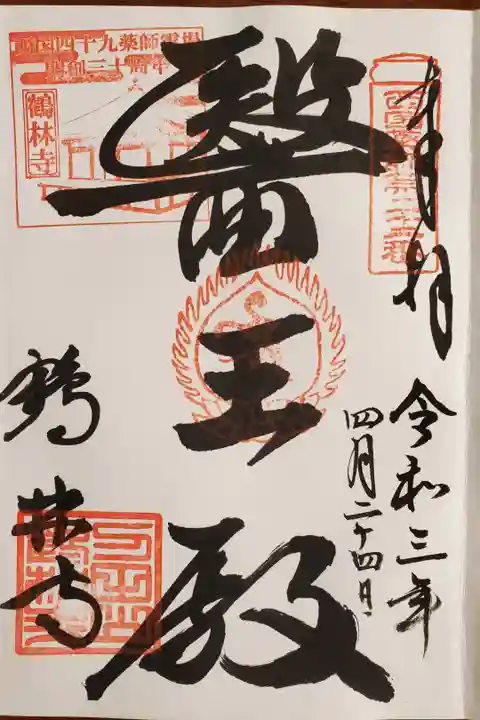 奉拝
令和三年
四月二十四日
醫王殿
西国四十九薬師霊場
開創三十周年
鶴林寺
鶴林寺